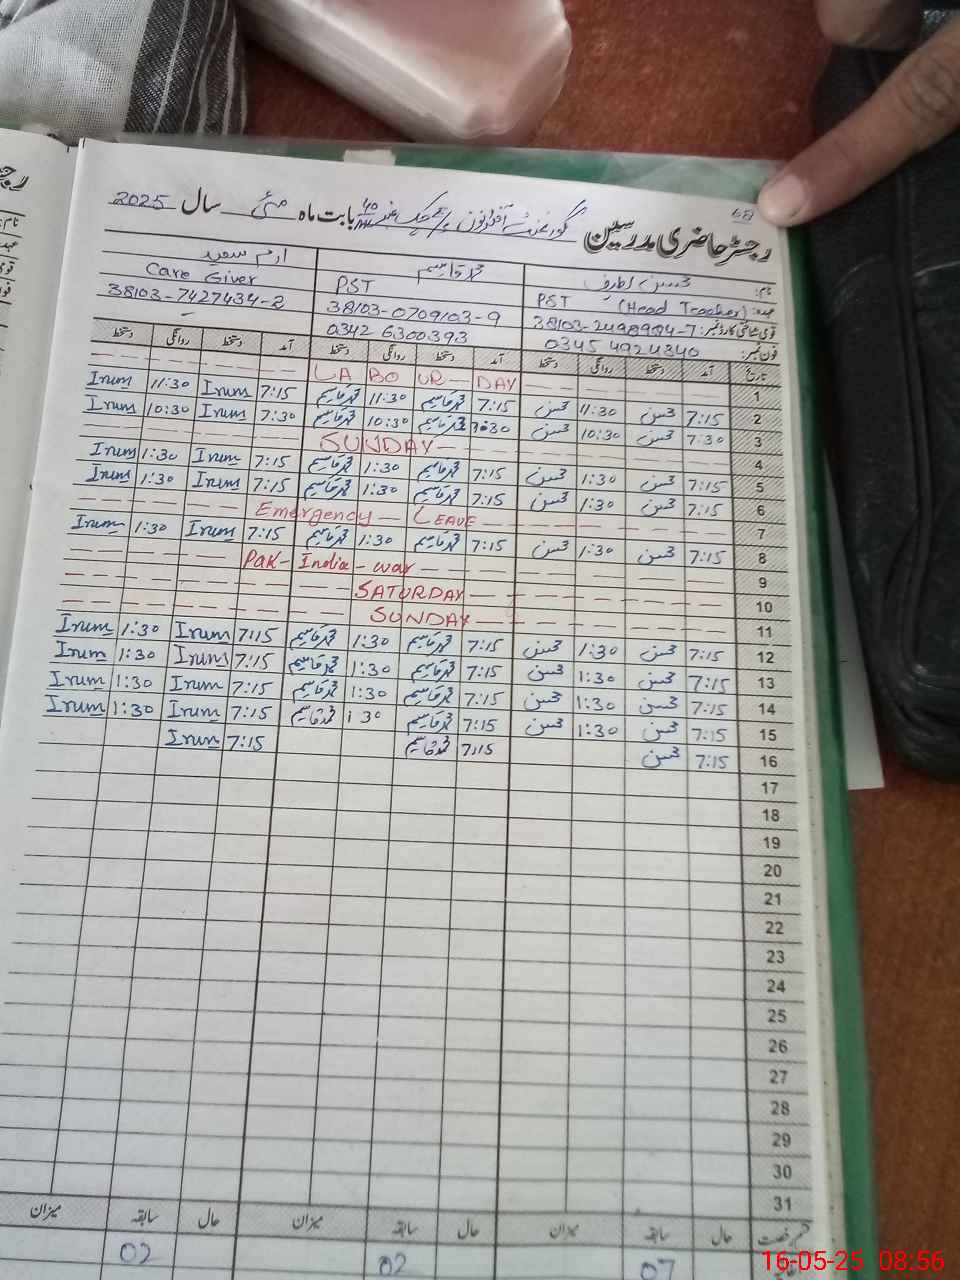 68
رجسٹر حاضری مدرسین گورنمنٹ بابت ماہ مئی سال 2025
نام: محسن لطیف محمد قاسم ارم سعید
عہدہ: PST (Head Teacher) PST Care Giver
قومی شناختی کارڈ نمبر: 38103-2498904-7 38103-0709103-9 38103-7427434-2
فون نمبر: 0345 4924340 0342 6300393
تاریخ آمد دستخط روانگی دستخط آمد دستخط روانگی دستخط آمد دستخط روانگی دستخط
1 LABOUR DAY
2 7:15 محسن 11:30 محسن 7:15 محمد قاسم 11:30 محمد قاسم 7:15 Irum 11:30 Irum
3 7:30 محسن 10:30 محسن 7:30 محمد قاسم 10:30 محمد قاسم 7:30 Irum 10:30 Irum
4 SUNDAY
5 7:15 محسن 1:30 محسن 7:15 محمد قاسم 1:30 محمد قاسم 7:15 Irum 1:30 Irum
6 7:15 محسن 1:30 محسن 7:15 محمد قاسم 1:30 محمد قاسم 7:15 Irum 1:30 Irum
7 Emergency LEAVE
8 7:15 محسن 1:30 محسن 7:15 محمد قاسم 1:30 محمد قاسم 7:15 Irum 1:30 Irum
9 Pak-India-war
10 SATURDAY
11 SUNDAY
12 7:15 محسن 1:30 محسن 7:15 محمد قاسم 1:30 محمد قاسم 7:15 Irum 1:30 Irum
13 7:15 محسن 1:30 محسن 7:15 محمد قاسم 1:30 محمد قاسم 7:15 Irum 1:30 Irum
14 7:15 محسن 1:30 محسن 7:15 محمد قاسم 1:30 محمد قاسم 7:15 Irum 1:30 Irum
15 7:15 محسن 1:30 محسن 7:15 محمد قاسم 1:30 محمد قاسم 7:15 Irum 1:30 Irum
16 7:15 محسن 7:15 محمد قاسم 7:15 Irum
17
18
19
20
21
22
23
24
25
26
27
28
29
30
31
قسم رخصت حال سابقہ میزان حال سابقہ میزان حال سابقہ میزان
07 02 02
16-05-25 08:56